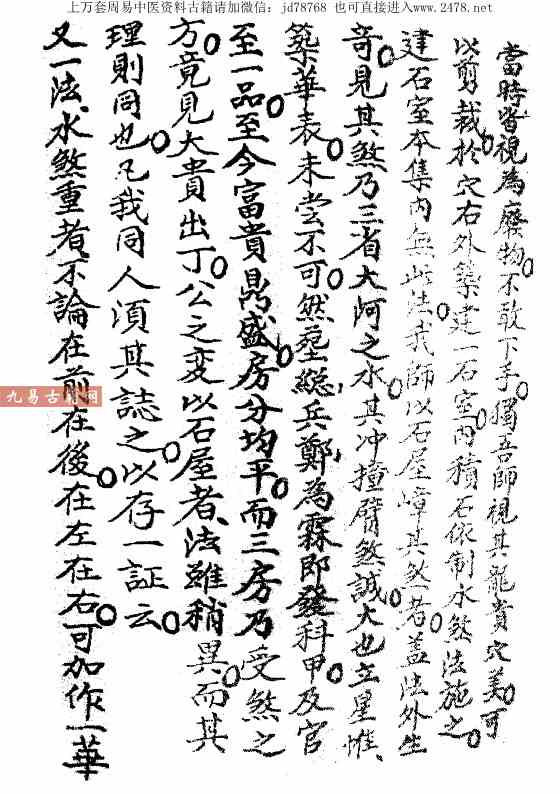 上万套周易中医资料古籍请加微信：jd78768 也可直接进入www.2478.net
當時皆視為廢物不敢下手獨吾師視其龍貴穴美可
以剪裁於穴右外築建一石室內積石依制水煞法施之
建石室本集內無此法我師以石屋嶂其煞者蓋法外生
奇見其煞乃三省大河之水其冲撞臂煞誠大也立星惟
築華表未尝不可然塟總兵鄭為霖即發科甲及官
至一品至今富貴鼎盛房分均平而三房乃受煞之
方竟見大貴出丁公之变以石屋者法雖稍異而其
理則同也凡我同人須其誌之以存一証云
又一法水煞重者不論在前在後在左在右可加作一華
九易古籍网